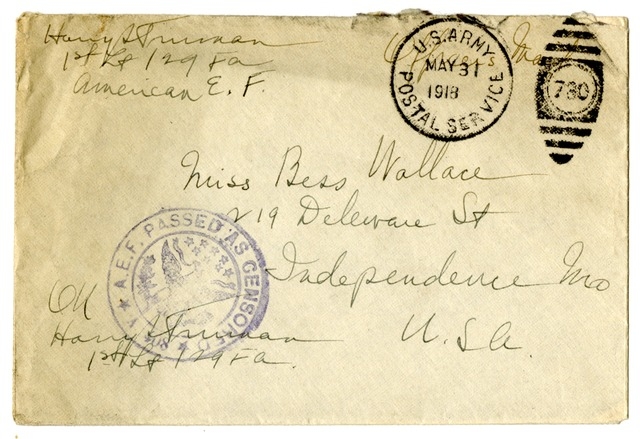 Harry S Truman
1st Lt 129 Fa
American E. F.
Officer's Mail
U.S. ARMY
MAY 31
1918
POSTAL SERVICE
780
Miss Bess Wallace
219 Deleware St
Independence Mo
U.S.a.
A.E.F. PASSED AS CENSORED
OK
Harry S Truman
1st Lt 129 Fa.